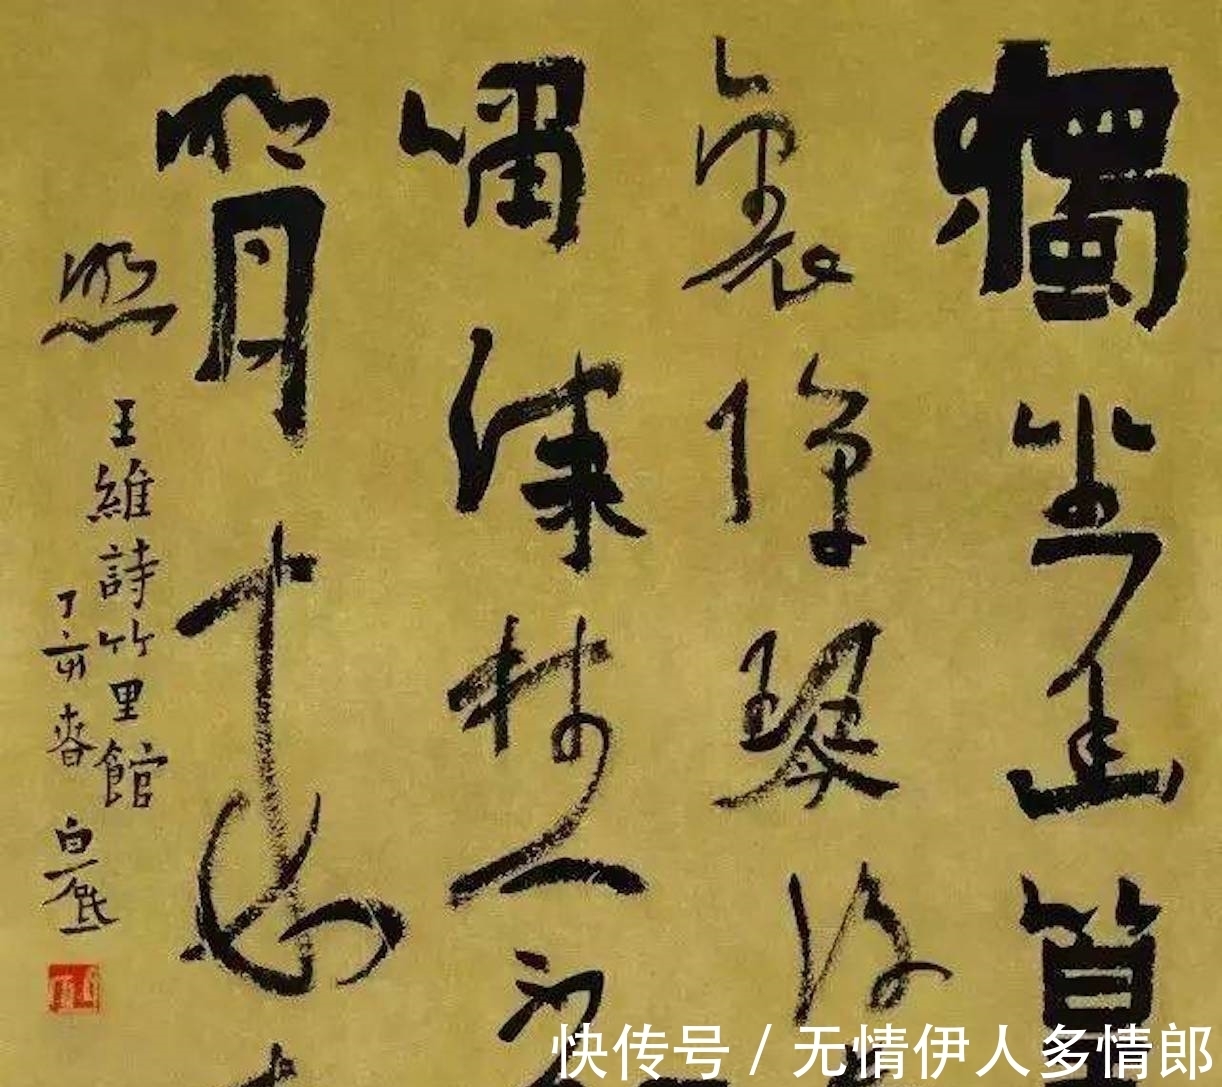 獨坐幽篁
裏彈琴復
嘯深林人不
明月来
照
王維詩竹里館
丁亥春白砥
快传号/无情伊人多情郎